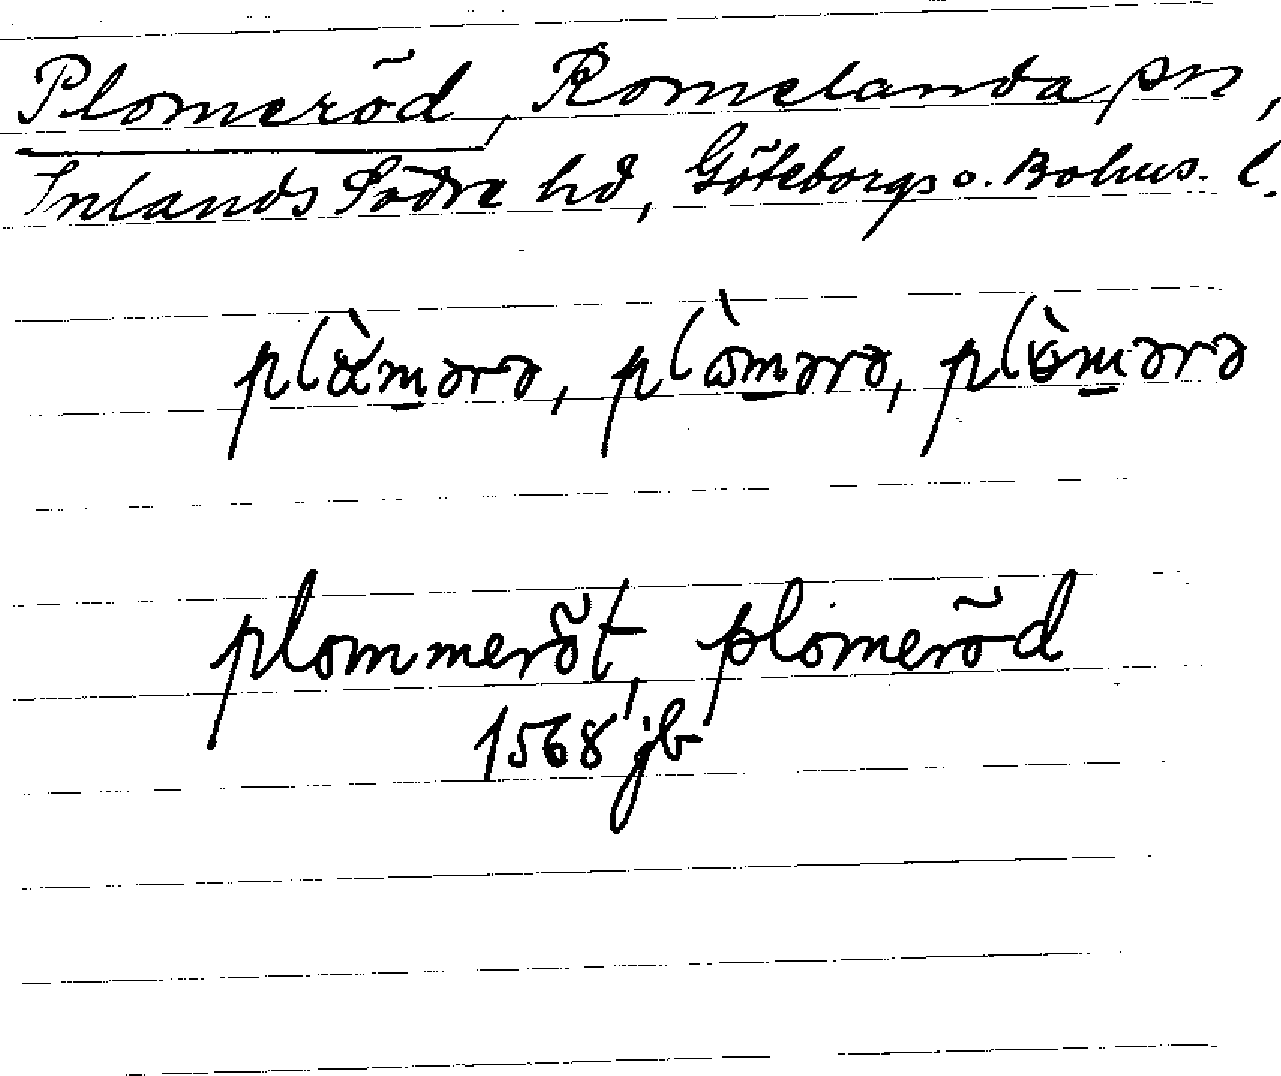 Plomeröd, Romelanda sn,
Inlands Södra hd, Göteborgs o. Bohus. l.
plὰm̲ərə, plὼm̲ərə, plò̲m̲ərə
plommeröt, plomeröd
1568 jb